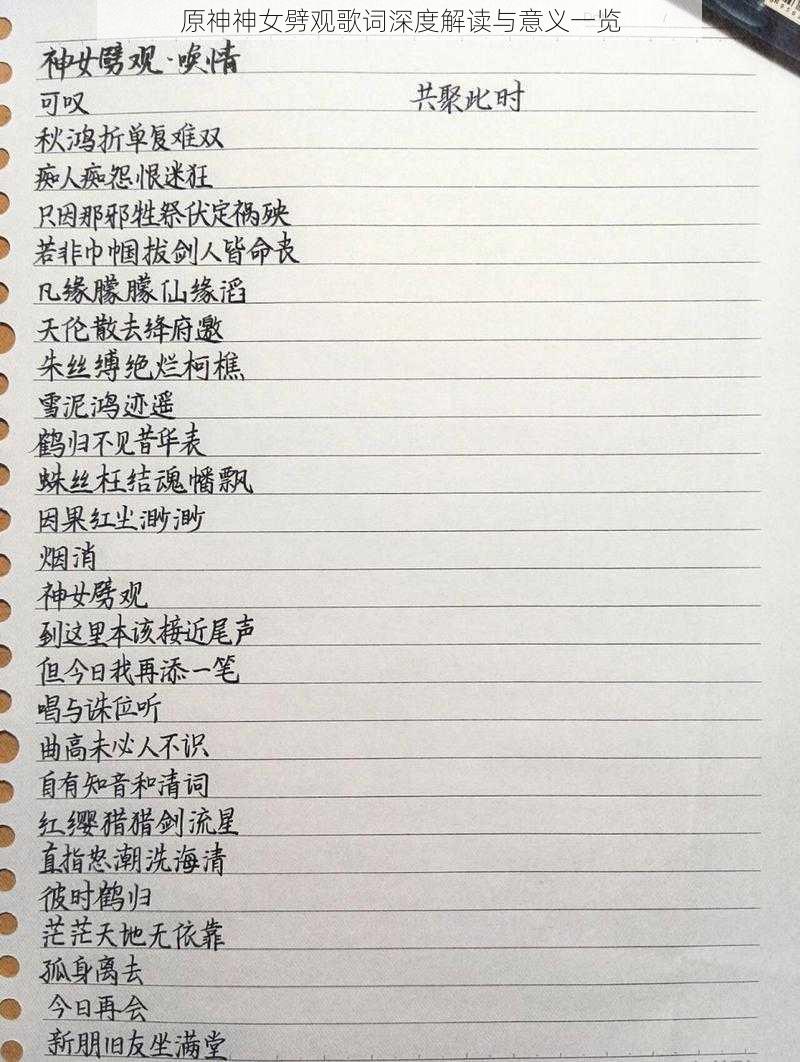 原神神女劈观歌词深度解读与意义一览
神女劈观·唤情
可叹
秋鸿折单复难双
痴人痴怨恨迷狂
只因那邪牲祭伏定祸殃
若非巾帼拔剑人皆命丧
凡缘朦朦仙缘滔
天伦散去绛府邀
朱丝缚绝烂柯樵
雪泥鸿迹遥
鹤归不见昔华表
蛛丝枉结魂幡飘
因果红尘渺渺
烟消
神女劈观
到这里本该接近尾声
但今日我再添一笔
唱与诛位听
曲高未必人不识
自有知音和清词
红缨猎猎剑流星
直指怒潮洗海清
彼时鹤归
茫茫天地无依靠
孤身离去
今日再会
新朋旧友坐满堂
共聚此时